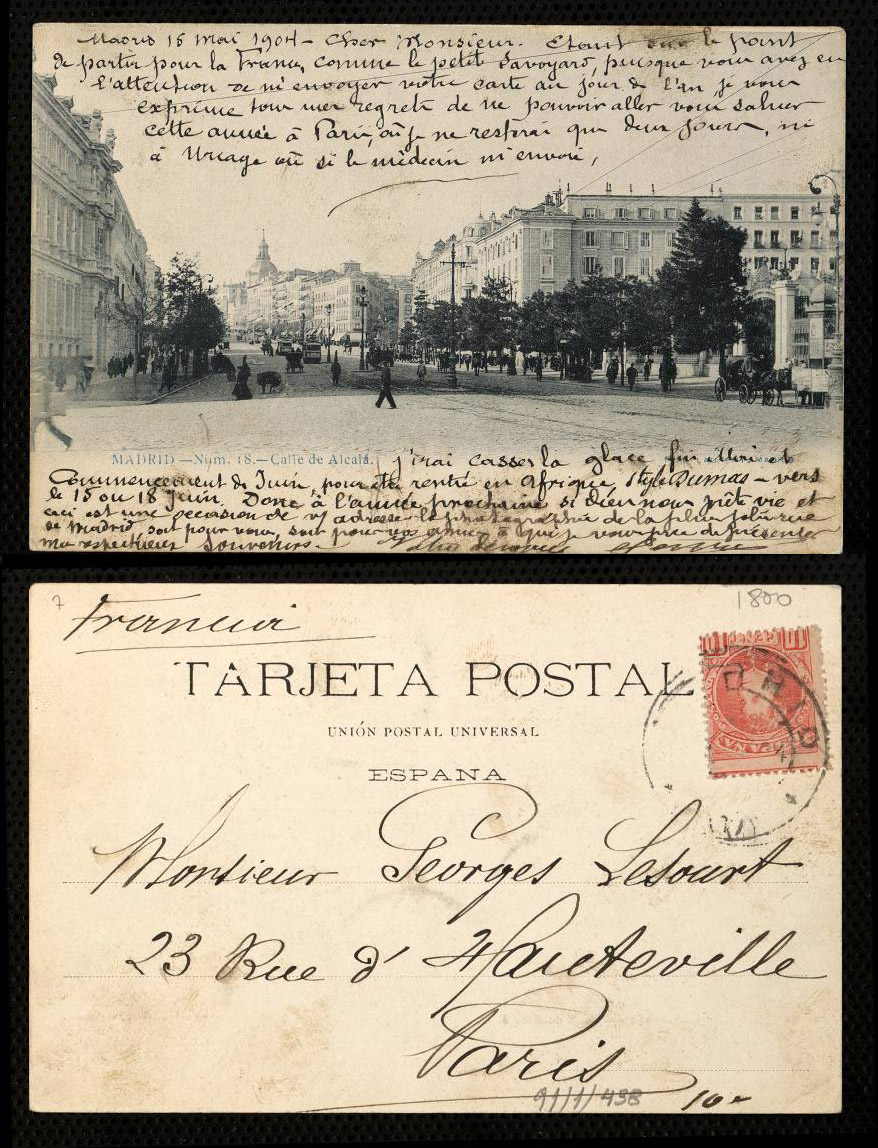 Madrid 15 mai 1904 - Cher Monsieur. Etant sur le point
de partir pour la France, comme le petit Savoyard, puisque vous avez eu
l'attention de m'envoyer votre carte au jour de l'an, je vous
exprime tous mes regrets de ne pouvoir aller vous saluer
cette année à Paris, où je ne resterai que deux jours, ni
à Uriage où si le médecin m'envoie,
MADRID —Num. 18.—Calle de Alcalá.
j'irai casser la glace fin et
Commencement de Juin, pour être rentré en Afrique, style Dumas - vers
le 15 ou 18 Juin. Donc à l'année prochaine si dieu nous prête vie et
ceci est une occasion de v/ adresser la photographie de la plus jolie rue
de Madrid, soit pour vous, soit pour vos amis à qui je vous prie de présenter
mes respectueux souvenirs.
7
1800
Francia
TARJETA POSTAL
UNIÓN POSTAL UNIVERSAL
ESPAÑA
10 10
Monsieur Georges Lesourt
23 Rue d'Hauteville
Paris
91/1/438
10-